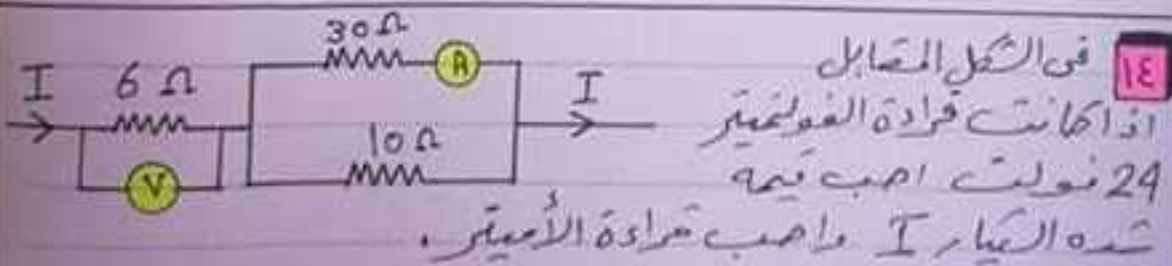 ١٤ في الشكل المقابل
اذا كانت قراءة الفولتميتر
24 فولت احسب قيمة
شدة التيار I واحسب قراءة الأميتر.
30 Ω
A
I 6 Ω I
10 Ω
V